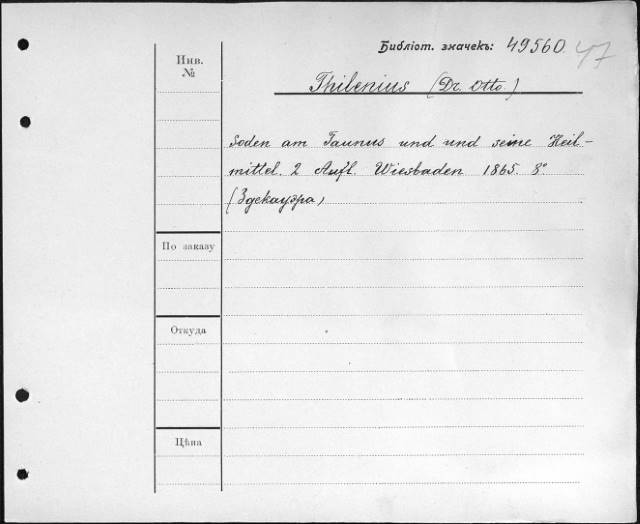 Библіот. значекъ: 49560. 47
Инв.
№
Thilenius (Dr. Otto.)
Soden am Taunus und und seine Heil-
mittel. 2 Aufl. Wiesbaden 1865. 8°
(Здекауэра)
По заказу
Откуда
Цѣна